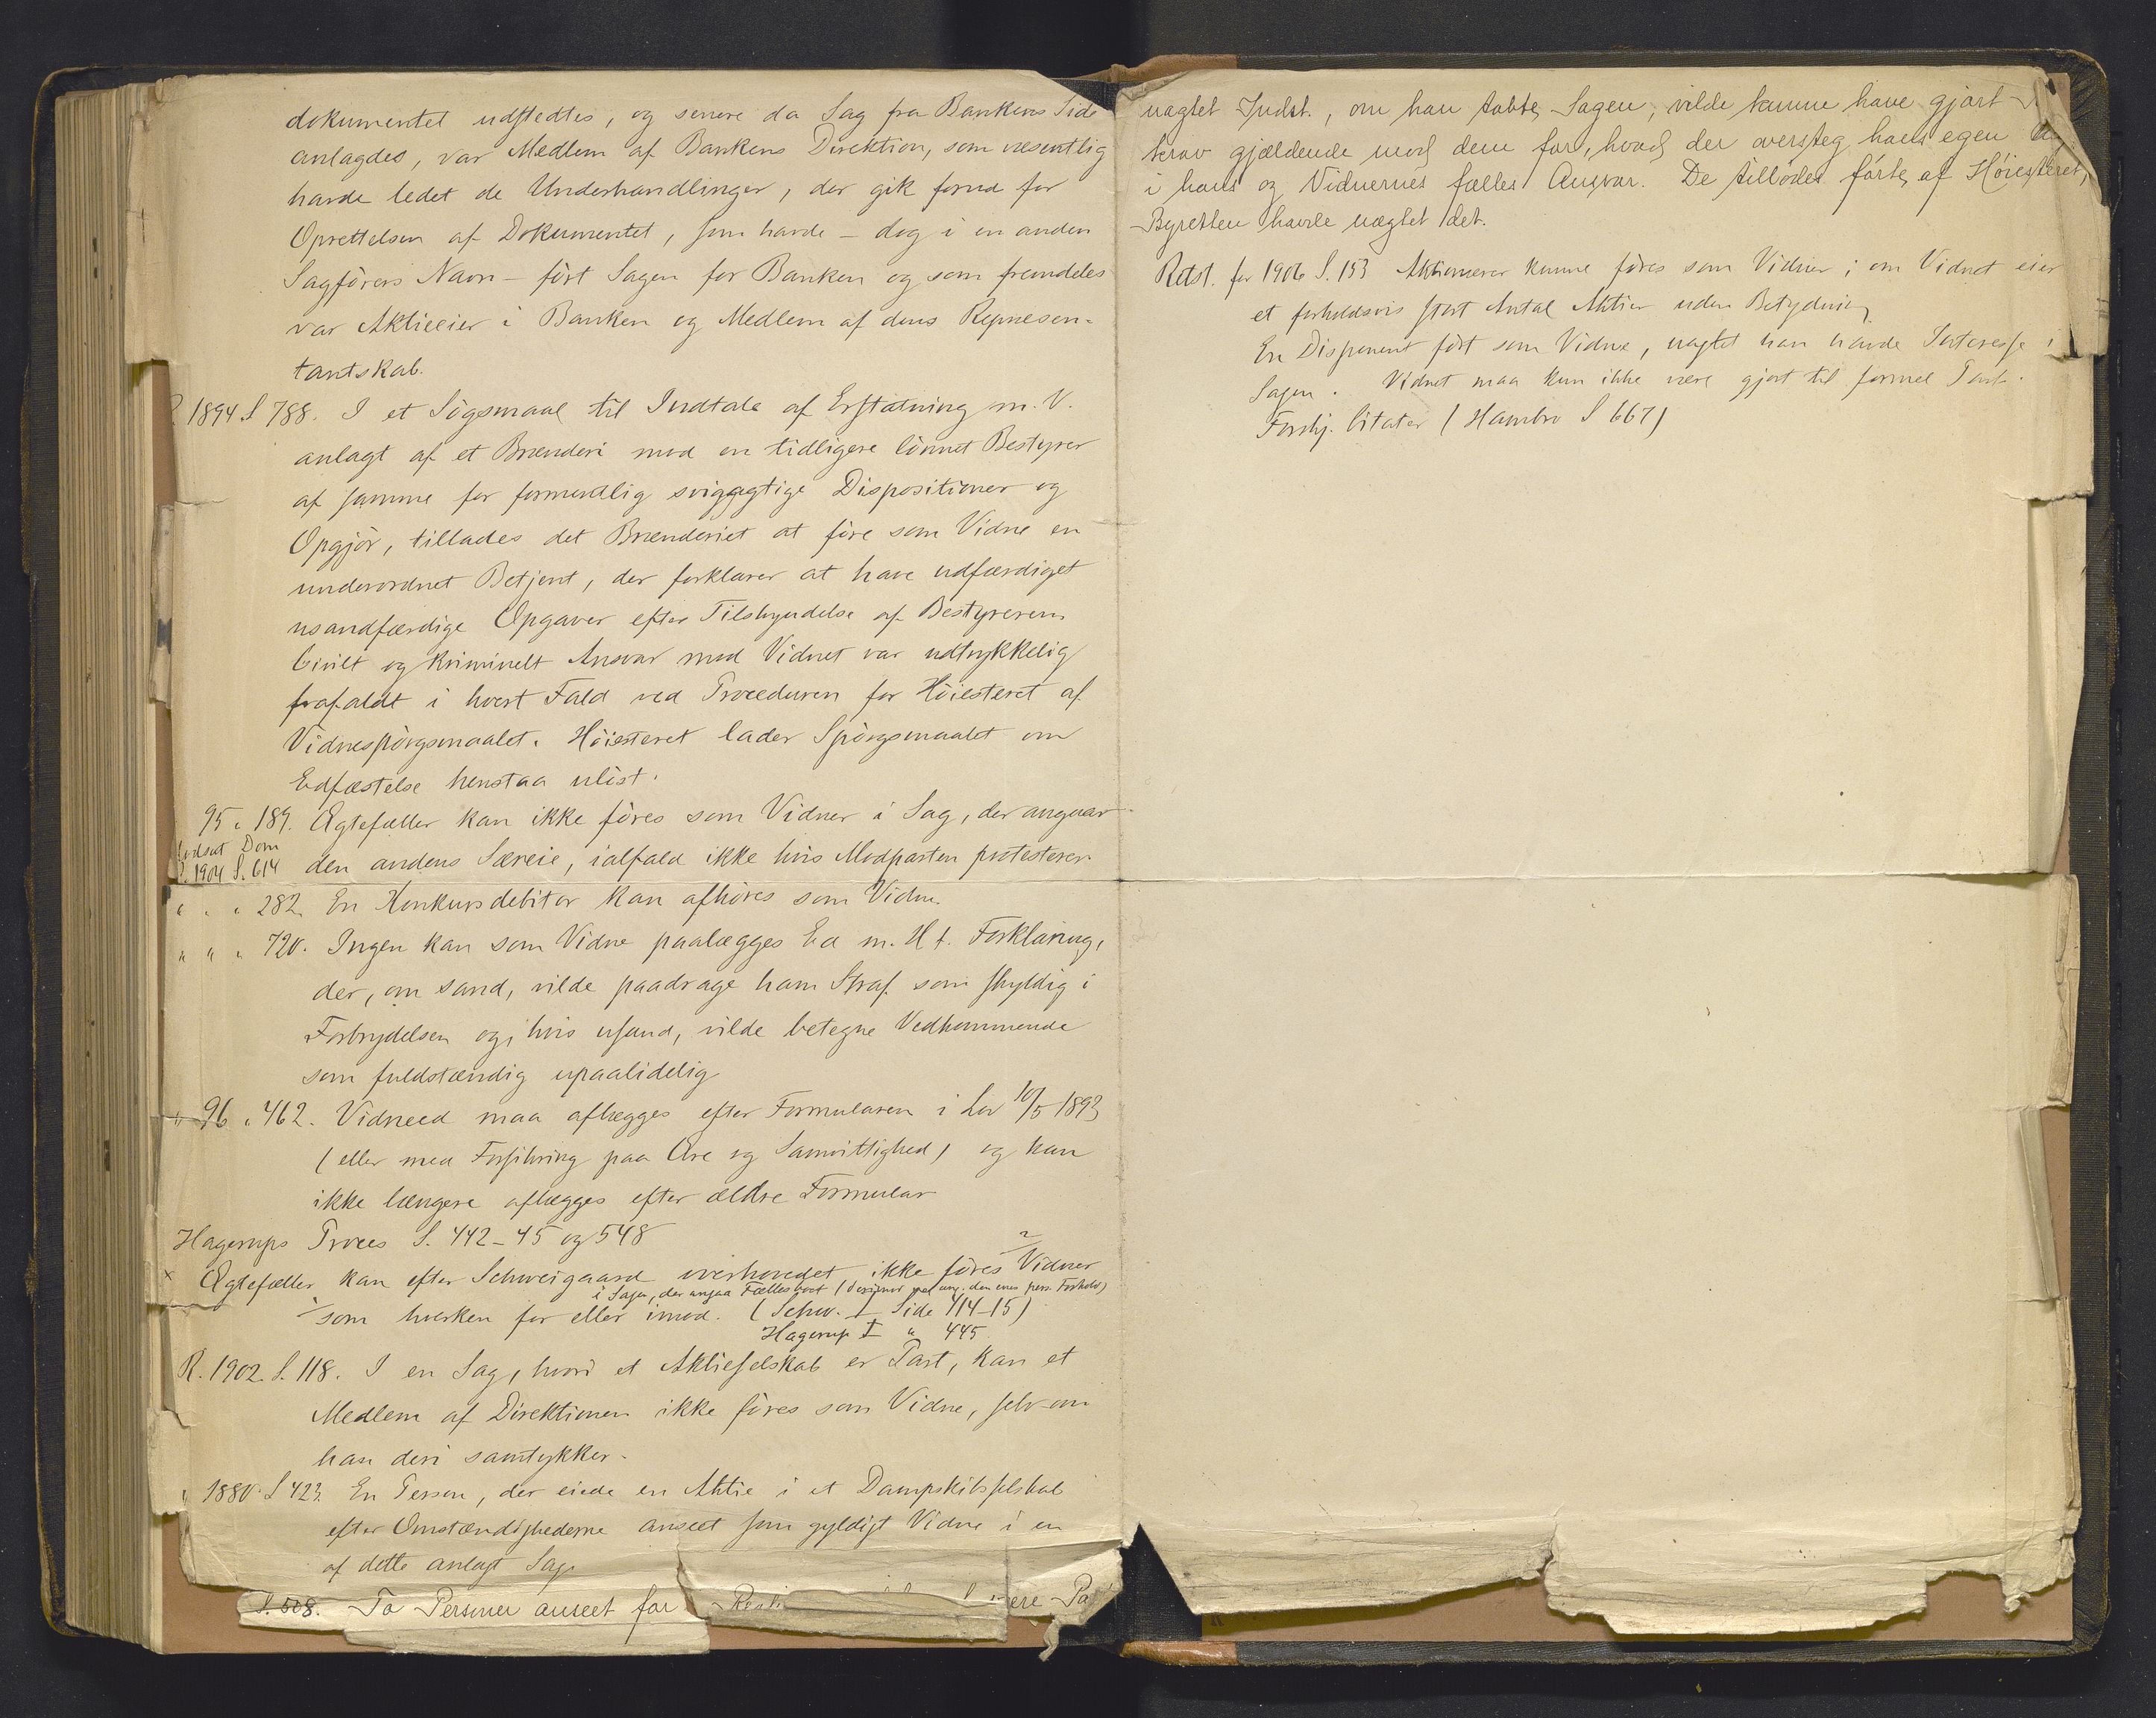 dokumentet udstedtes, og senere da Sag fra Bankens Side
anlagdes, var Medlem af Bankens Direktion, som væsentlig
havde ledet de Underhandlinger, der gik forud for
Oprettelsen af Dokumentet, som havde – dog i en anden
Sagførers Navn – ført Sagen for Banken og som fremdeles
var Aktieeier i Banken og Medlem af dens Repræsen-
tantskab.
R. 1894 S 788. I et Søgsmaal til Indtale af Erstatning m. V.
anlagt af et Brænderi mod en tidligere lønnet Bestyrer
af samme for formentlig svigagtige Dispositioner og
Opgjør, tillades det Brænderiet at føre som Vidne en
underordnet Betjent, der forklarer at have udfærdiget
usandfærdige Opgaver efter Tilskyndelse af Bestyreren.
Civilt og kriminelt Ansvar mod Vidnet var udtrykkelig
frafaldt i hvert Fald ved Proceduren for Høiesteret af
Vidnespørgsmaalet. Høiesteret lader Spørgsmaalet om
Edfæstelse henstaa uløst.
95 " 189. Ægtefæller kan ikke føres som Vidner i Sag, der angaar
modsat Dom
R. 1904 S. 614 den andens Særeie, ialfald ikke hvis Modparten protesterer.
" " " 282. En Konkursdebitor kan afhøres som Vidne.
" " " 720. Ingen kan som Vidne paalægges Ed m. H t. Forklaring,
der, om sand, vilde paadrage ham Straf som skyldig i
Forbrydelsen og, hvis usand, vilde betegne Vedkommende
som fuldstændig upaalidelig
" 96 " 462. Vidneed maa aflægges efter Formularen i Lov 10/5 1893
(eller med Forsikring paa Ære og Samvittighed) og kan
ikke længere aflægges efter ældre Formular
Hagerups Proces S. 442–45 og 548
x Ægtefæller kan efter Schweigaard overhovedet ikke føres Vidner
i Sager, der angaa Fællesboet (derimod vel ang. den enes pers. Forhold)
som hverken for eller imod. (Schw. I Side 414–15)
Hagerup I " 445
R. 1902. S. 118. I en Sag, hvori et Aktieselskab er Part, kan et
Medlem af Direktionen ikke føres som Vidne, selv om
han deri samtykker.
" 1880 S 423. En Person, der eiede en Aktie i et Dampskibsselskab
efter Omstændighederne anseet som gyldigt Vidne i en
af dette anlagt Sag.
S. 508. To Personer anseet for
uagtet Indst., om han tabte Sagen, vilde kunne have gjort
krav gjældende mod dem for, hvad der oversteg hans egen
i hans og Vidnernes fælles Ansvar. De tillodes førte af Høiesteret,
Byretten havde nægtet det.
Retst. for 1906 S. 153 Aktionærer kunne føres som Vidner; om Vidnet eier
et forholdsvis stort Antal Aktier uden Betydning
En Disponent ført som Vidne, uagtet han havde Interesse i
Sagen. Vidnet maa kun ikke være gjort til formel Part.
Forskj. Citater (Hambro S 667)